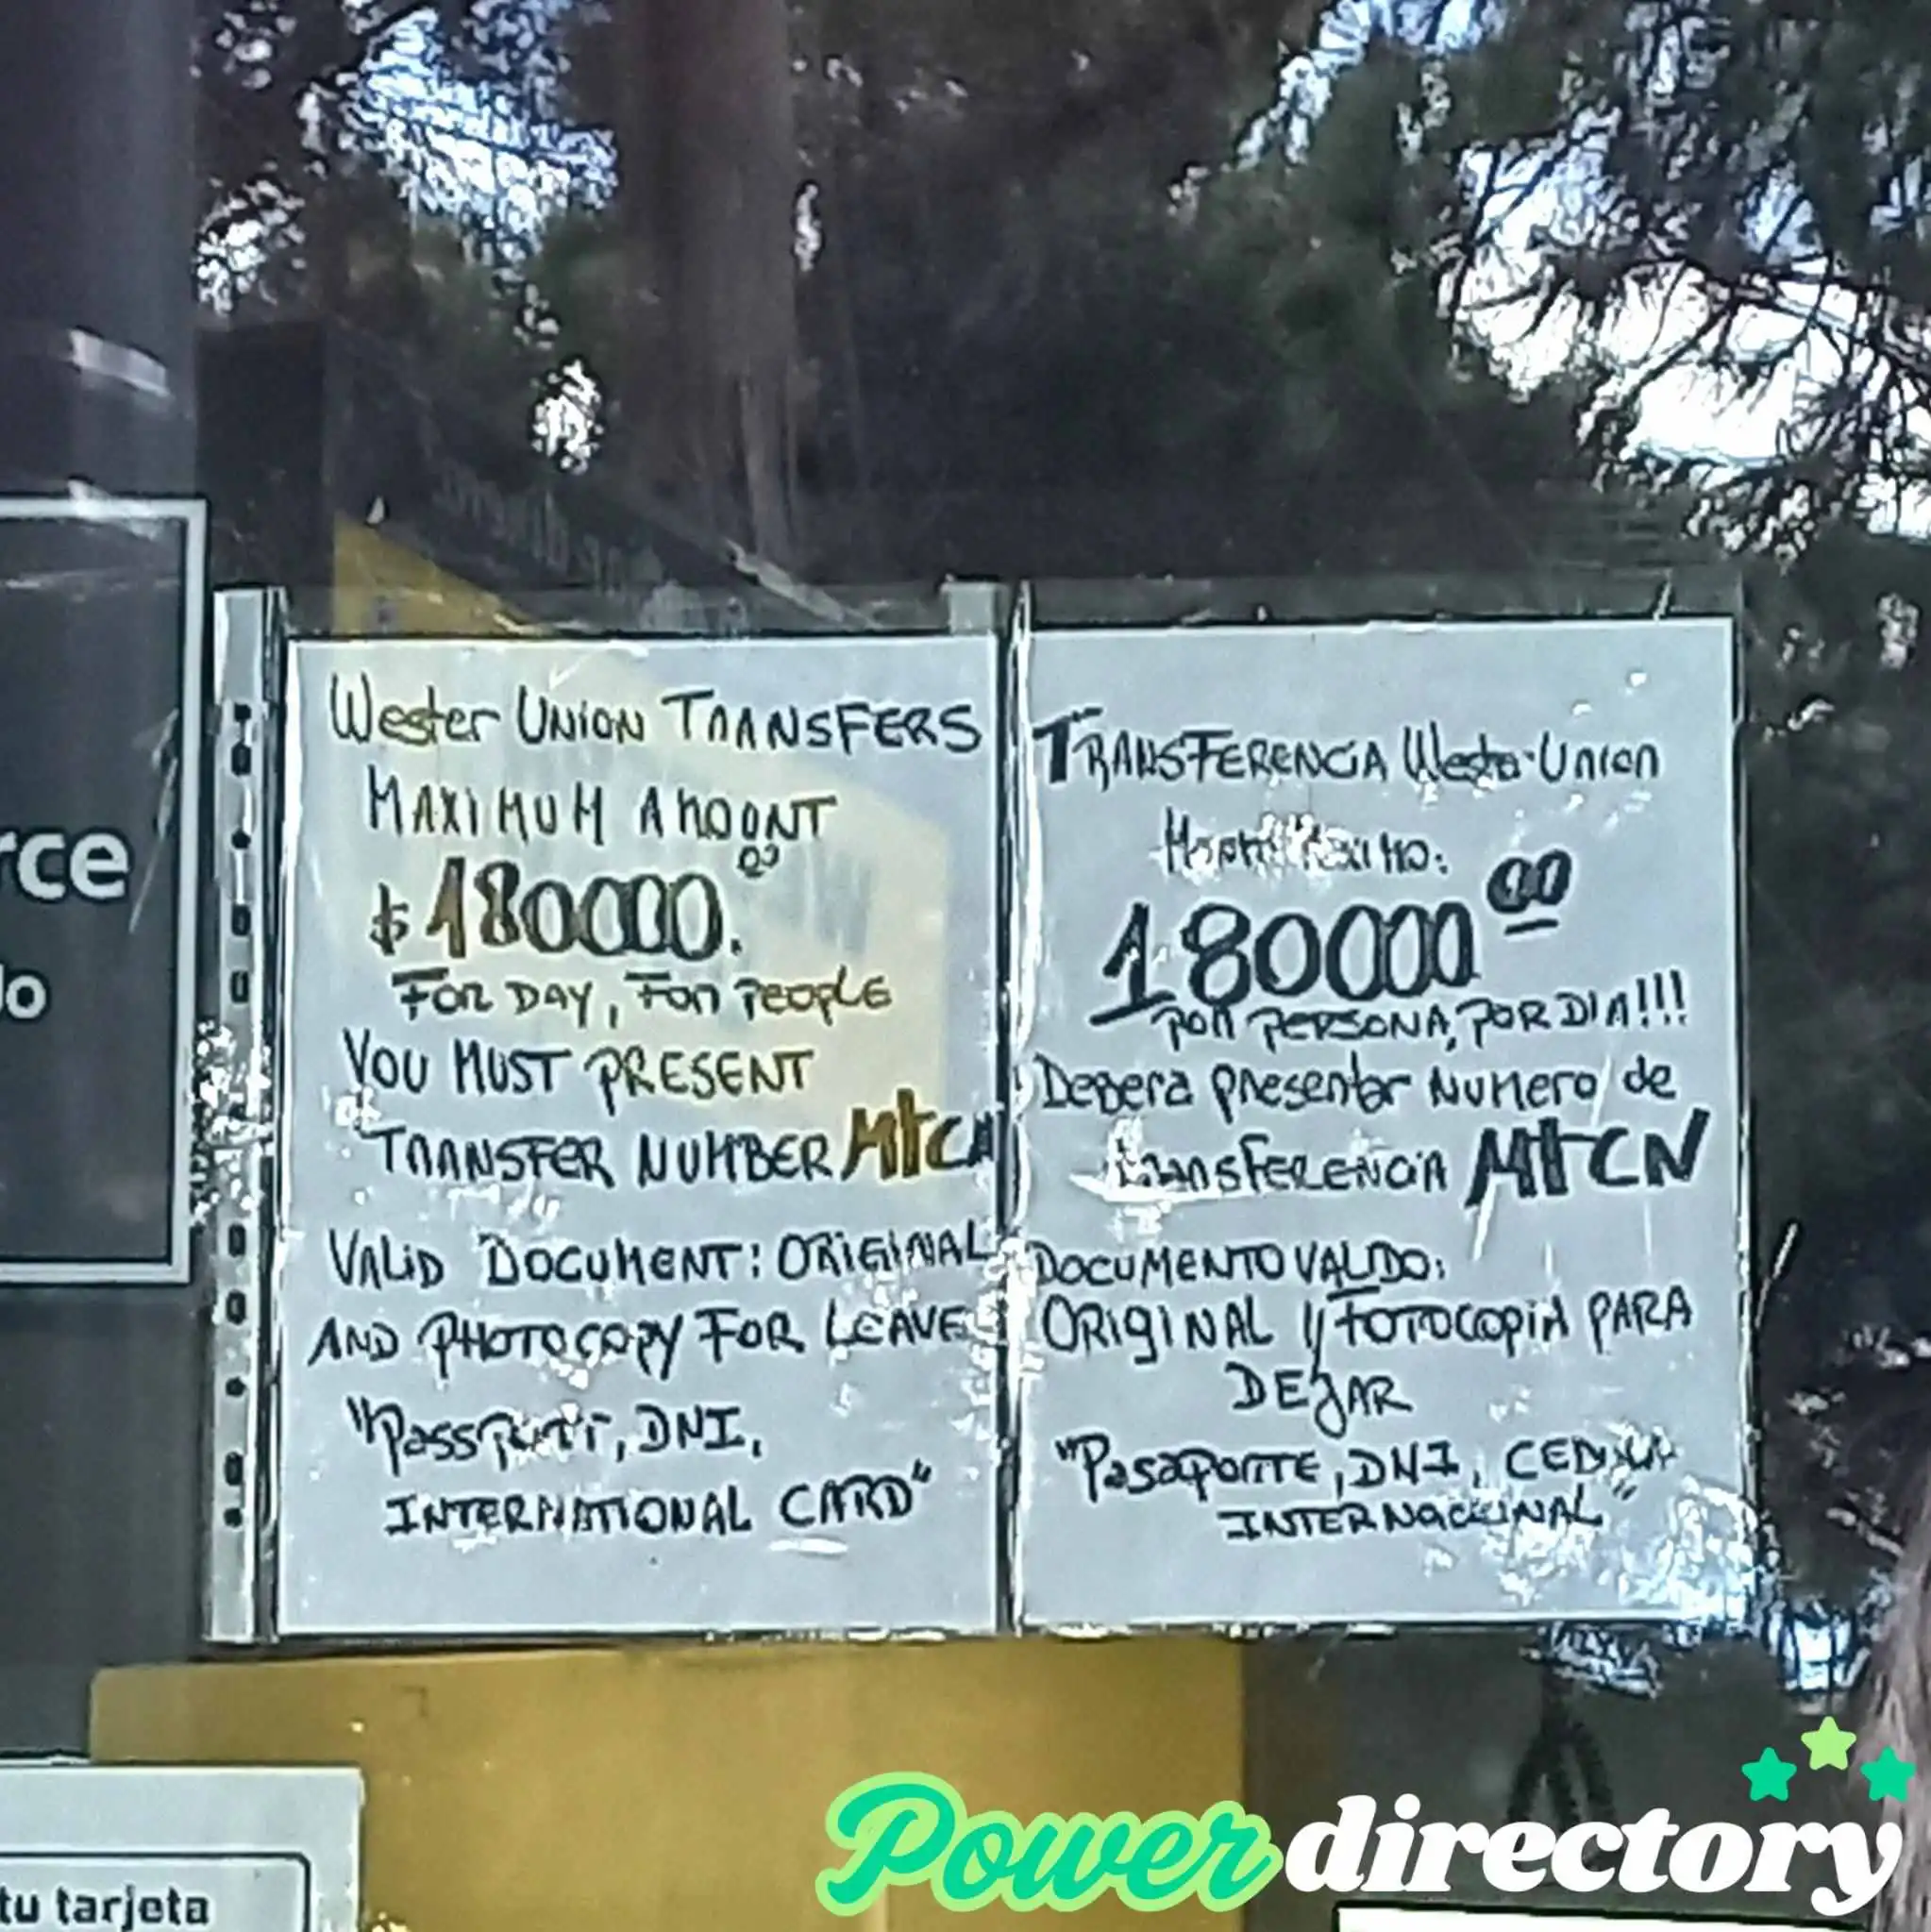 Wester UNION TRANSFERS
MAXIMUM AMOUNT
$180000.00
FOR DAY, FOR PEOPLE
YOU MUST PRESENT
TRANSFER NUMBER MTCN
VALID DOCUMENT: ORIGINAL
AND PHOTOCOPY FOR LEAVE
"PassPORT, DNI,
INTERNATIONAL CARD"
TRANSFERENCIA Wester Union
MONTO MAXIMO:
180000 00
POR PERSONA, POR DIA!!!
Debera presentar Numero de
TRANSFERENCIA MTCN
DOCUMENTO VALIDO:
ORIGINAL y FOTOCOPIA PARA
DEJAR
"PasaPORTE, DNI, CEDULA
INTERNACIONAL"
rce
do
tu tarjeta
Power directory